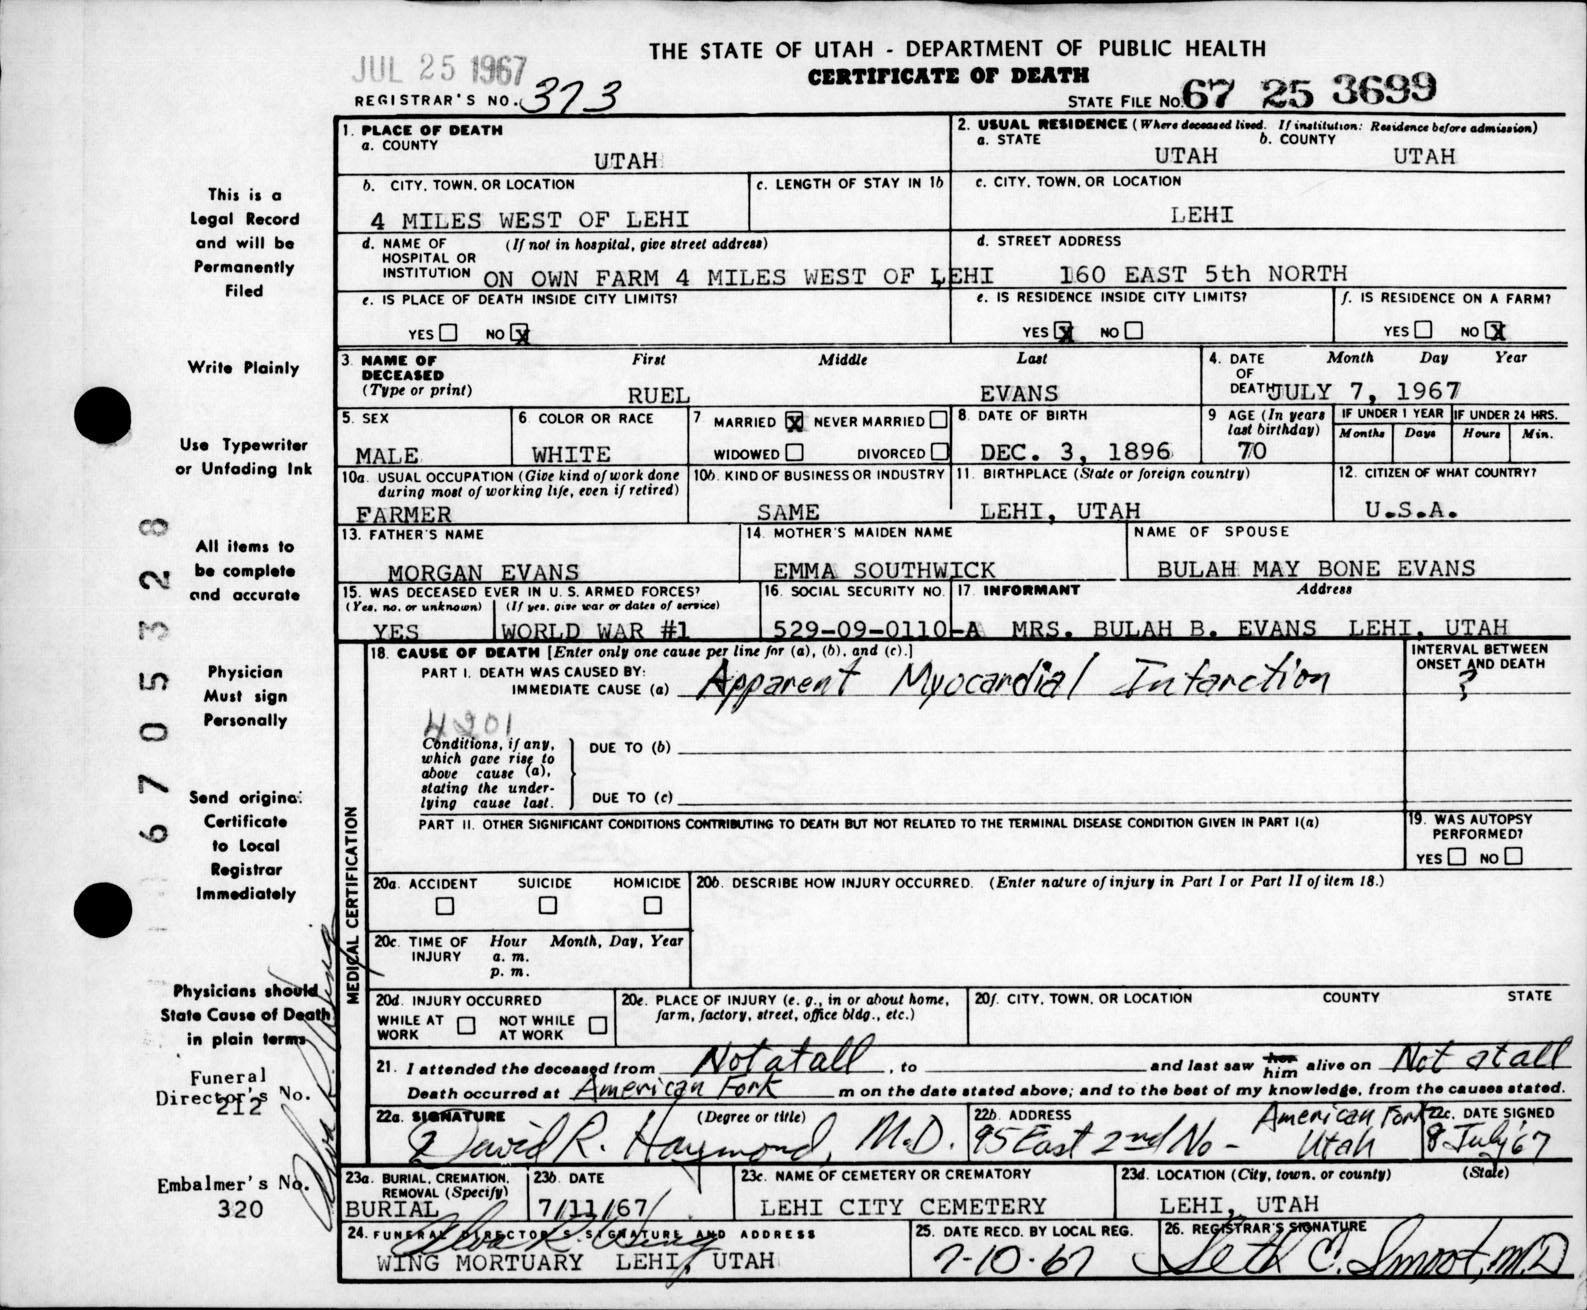 THE STATE OF UTAH - DEPARTMENT OF PUBLIC HEALTH
JUL 25 1967
CERTIFICATE OF DEATH
REGISTRAR'S NO. 373
STATE FILE NO. 67 25 3699
1. PLACE OF DEATH
a. COUNTY
UTAH
2. USUAL RESIDENCE (Where deceased lived. If institution: Residence before admission)
a. STATE b. COUNTY
UTAH UTAH
b. CITY, TOWN, OR LOCATION c. LENGTH OF STAY IN 1b
4 MILES WEST OF LEHI
c. CITY, TOWN, OR LOCATION
LEHI
d. NAME OF HOSPITAL OR INSTITUTION (If not in hospital, give street address)
ON OWN FARM 4 MILES WEST OF LEHI
d. STREET ADDRESS
160 EAST 5th NORTH
e. IS PLACE OF DEATH INSIDE CITY LIMITS?
YES NO X
e. IS RESIDENCE INSIDE CITY LIMITS?
YES X NO
f. IS RESIDENCE ON A FARM?
YES NO X
3. NAME OF DECEASED (Type or print)
First Middle Last
RUEL EVANS
4. DATE OF DEATH Month Day Year
JULY 7, 1967
5. SEX
MALE
6. COLOR OR RACE
WHITE
7. MARRIED X NEVER MARRIED
WIDOWED DIVORCED
8. DATE OF BIRTH
DEC. 3, 1896
9. AGE (In years last birthday)
70
IF UNDER 1 YEAR IF UNDER 24 HRS.
Months Days Hours Min.
10a. USUAL OCCUPATION (Give kind of work done during most of working life, even if retired)
FARMER
10b. KIND OF BUSINESS OR INDUSTRY
SAME
11. BIRTHPLACE (State or foreign country)
LEHI, UTAH
12. CITIZEN OF WHAT COUNTRY?
U.S.A.
13. FATHER'S NAME
MORGAN EVANS
14. MOTHER'S MAIDEN NAME
EMMA SOUTHWICK
NAME OF SPOUSE
BULAH MAY BONE EVANS
15. WAS DECEASED EVER IN U. S. ARMED FORCES?
(Yes, no, or unknown) (If yes, give war or dates of service)
YES WORLD WAR #1
16. SOCIAL SECURITY NO.
529-09-0110-A
17. INFORMANT Address
MRS. BULAH B. EVANS LEHI, UTAH
MEDICAL CERTIFICATION
18. CAUSE OF DEATH [Enter only one cause per line for (a), (b), and (c).]
INTERVAL BETWEEN ONSET AND DEATH
PART I. DEATH WAS CAUSED BY:
IMMEDIATE CAUSE (a) Apparent Myocardial Infarction ?
4201
Conditions, if any, which gave rise to above cause (a), stating the underlying cause last.
DUE TO (b)
DUE TO (c)
PART II. OTHER SIGNIFICANT CONDITIONS CONTRIBUTING TO DEATH BUT NOT RELATED TO THE TERMINAL DISEASE CONDITION GIVEN IN PART I(a)
19. WAS AUTOPSY PERFORMED?
YES NO
20a. ACCIDENT SUICIDE HOMICIDE
20b. DESCRIBE HOW INJURY OCCURRED. (Enter nature of injury in Part I or Part II of item 18.)
20c. TIME OF INJURY Hour Month, Day, Year
a. m.
p. m.
20d. INJURY OCCURRED
WHILE AT WORK NOT WHILE AT WORK
20e. PLACE OF INJURY (e. g., in or about home, farm, factory, street, office bldg., etc.)
20f. CITY, TOWN, OR LOCATION COUNTY STATE
21. I attended the deceased from Not at all , to and last saw her him alive on Not at all
Death occurred at American Fork m on the date stated above; and to the best of my knowledge, from the causes stated.
22a. SIGNATURE (Degree or title)
David R. Haymond, M.D.
22b. ADDRESS
95 East 2nd No - American Fork Utah
22c. DATE SIGNED
8 July '67
23a. BURIAL, CREMATION, REMOVAL (Specify)
BURIAL
23b. DATE
7/11/67
23c. NAME OF CEMETERY OR CREMATORY
LEHI CITY CEMETERY
23d. LOCATION (City, town, or county) (State)
LEHI, UTAH
24. FUNERAL DIRECTOR'S SIGNATURE AND ADDRESS
WING MORTUARY LEHI, UTAH
25. DATE RECD. BY LOCAL REG.
7-10-67
26. REGISTRAR'S SIGNATURE
Seth C. Smoot, M.D
This is a
Legal Record
and will be
Permanently
Filed
Write Plainly
Use Typewriter
or Unfading Ink
All items to
be complete
and accurate
Physician
Must sign
Personally
Send original
Certificate
to Local
Registrar
Immediately
Physicians should
State Cause of Death
in plain terms
Funeral
Director's No.
212
Embalmer's No.
320
6705328